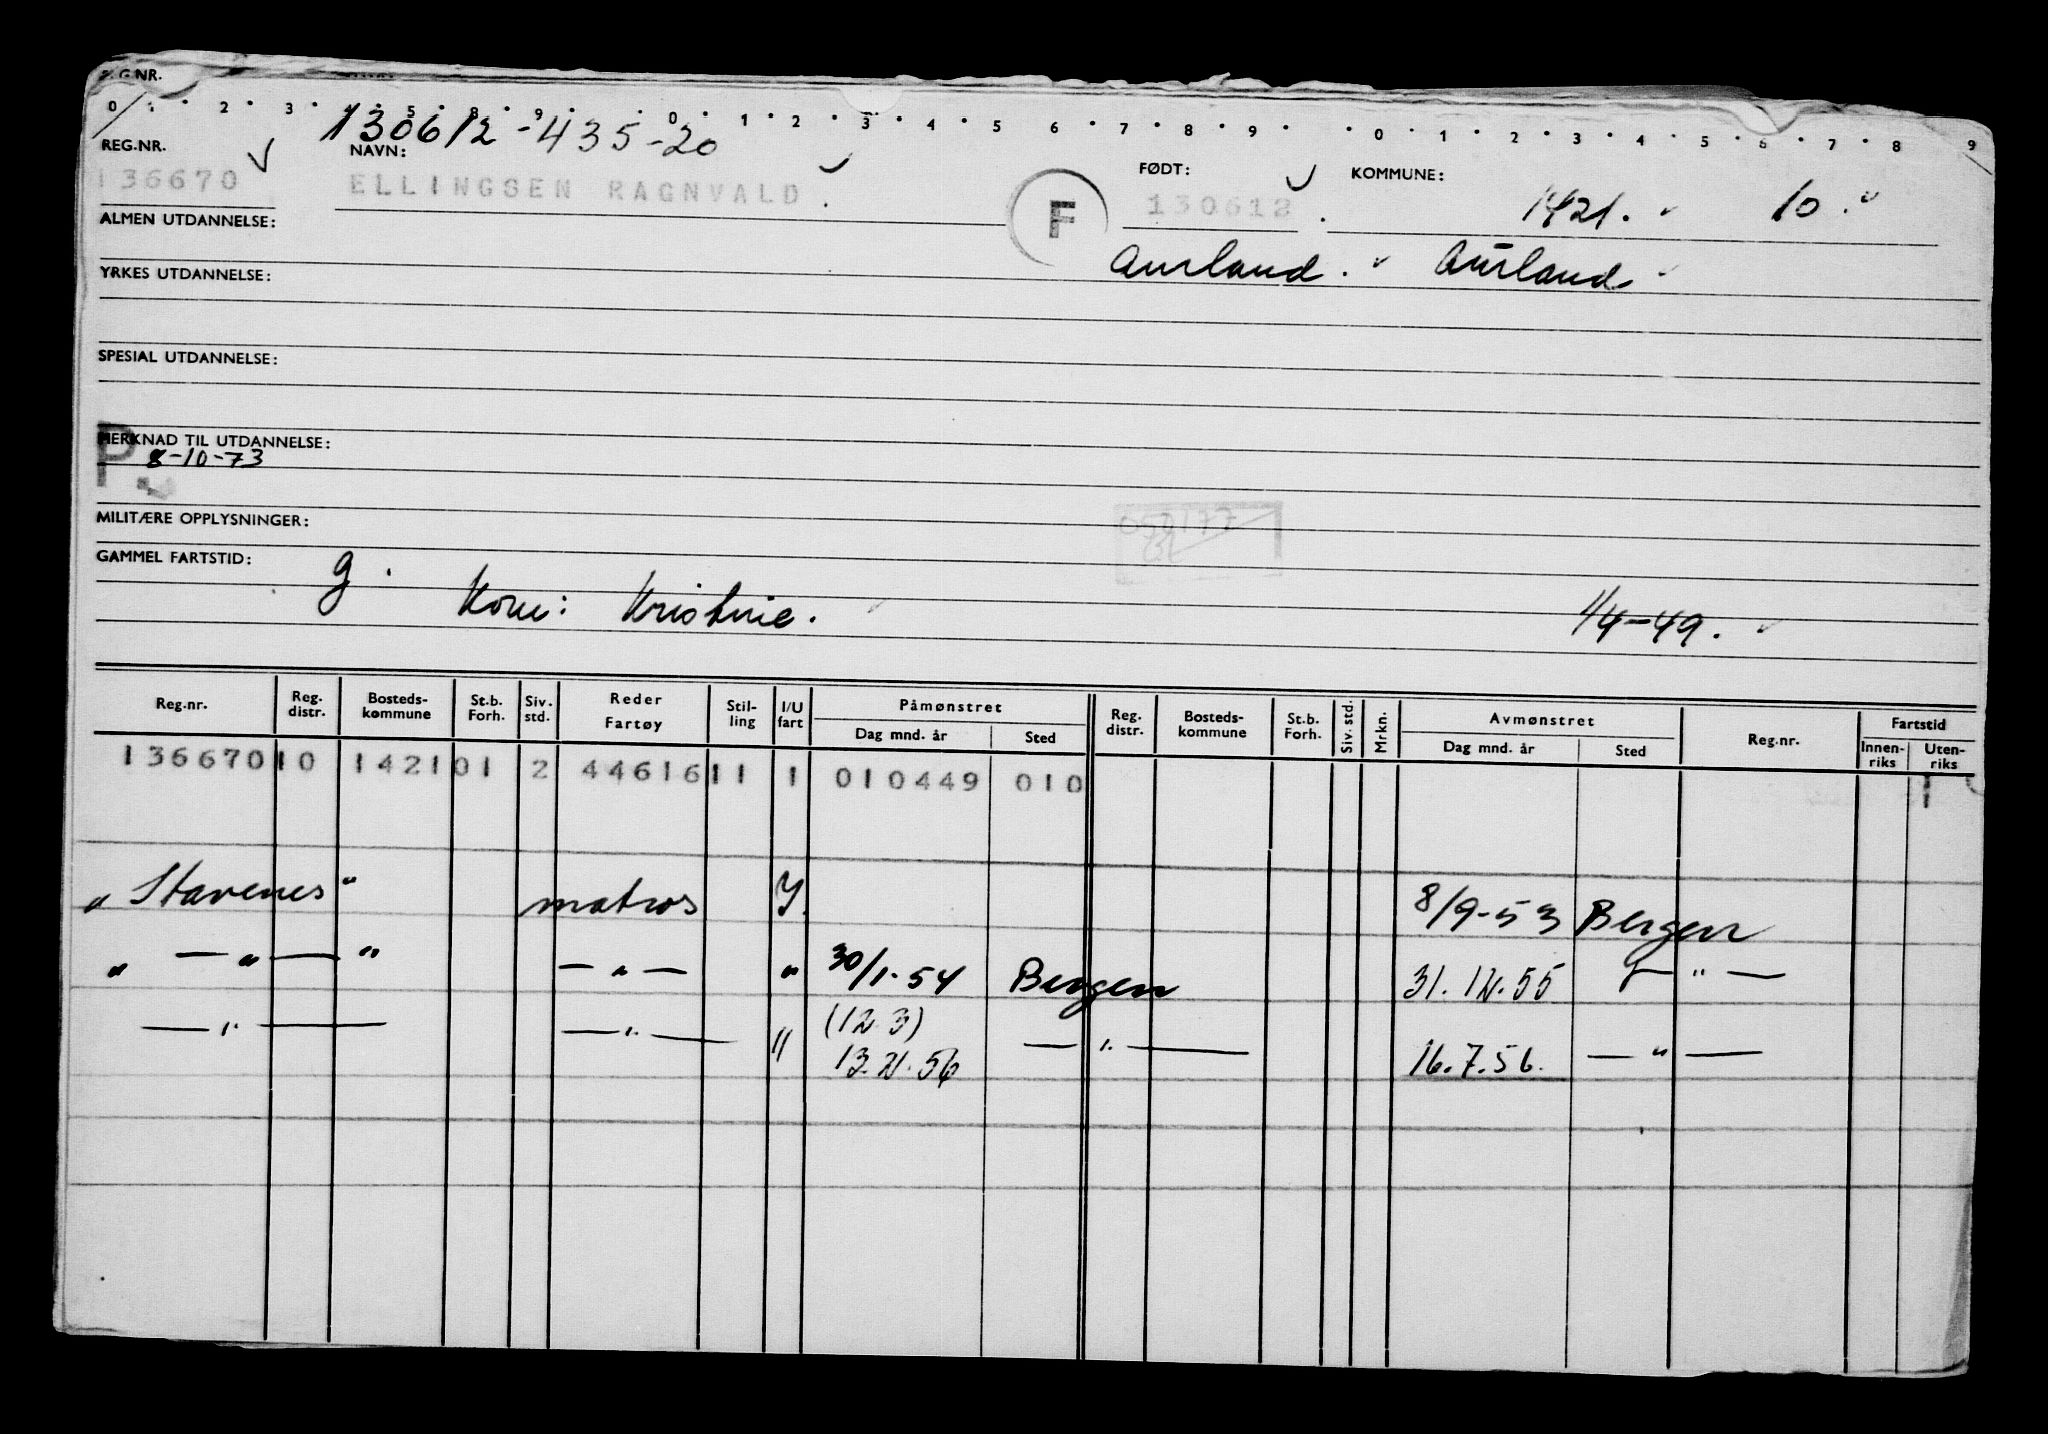 G.NR.
0 1 2 3 5 8 9 0 1 2 3 4 5 6 7 8 9 0 1 2 3 4 5 6 7 8 9
130612-435-20
REG.NR. NAVN: FØDT: KOMMUNE:
136670 ELLINGSEN RAGNVALD. F 130612. 1421. 10.
ALMEN UTDANNELSE: Aurland. Aurland
YRKES UTDANNELSE:
SPESIAL UTDANNELSE:
MERKNAD TIL UTDANNELSE:
P. 8-10-73
MILITÆRE OPPLYSNINGER:
GAMMEL FARTSTID: g.
Kone: Kristine. 1/4-49.
Reg.nr. Reg. distr. Bosteds-kommune St.b. Forh. Siv. std. Reder Fartøy Stil-ling I/U fart Påmønstret Dag mnd. år Sted Reg. distr. Bosteds-kommune St.b. Forh. Siv. std. Mrkn. Avmønstret Dag mnd. år Sted Reg.nr. Fartstid Innen-riks Uten-riks
136670 10 1421 01 2 44616 11 1 010449 010
"Stavenes" matros I. 8/9-53 Bergen
" — " — " — " — " 30/1-54 Bergen 31.12.55 — " —
— " — — " — " (12 3) 13.2.56 — " — 16.7.56. — " —